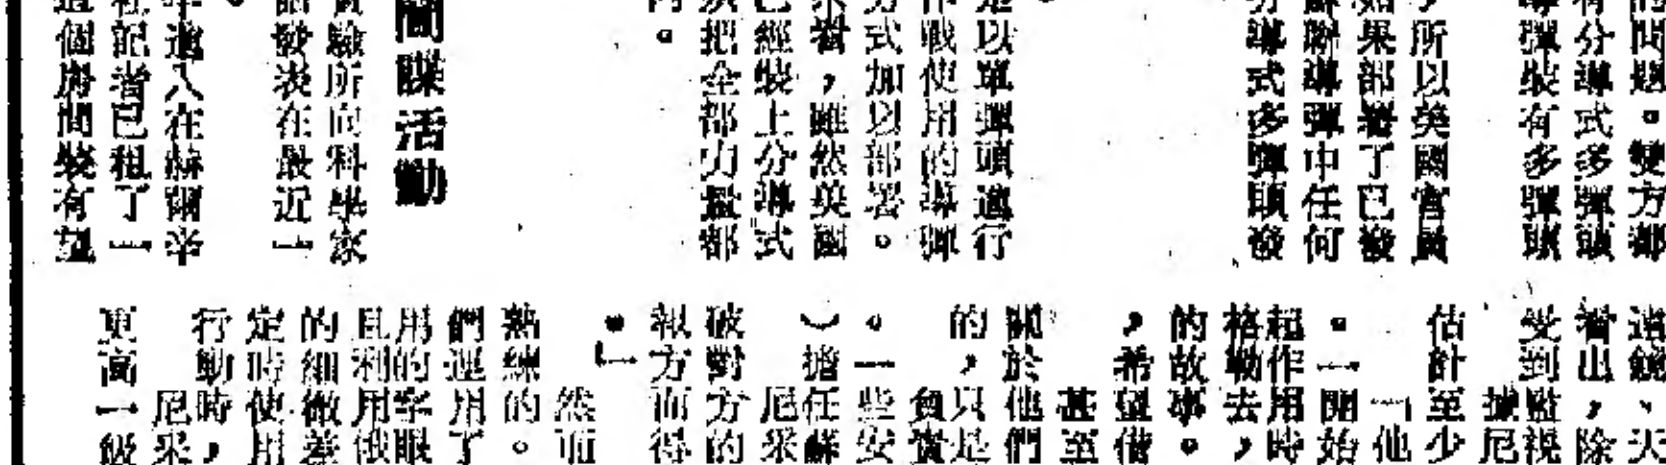 的問題。雙方都
有分導式多彈頭
導彈裝有多彈頭
，所以美國官員
如果部署了已發
蘇聯導彈中任何
分導式多彈頭發
。
是以單彈頭進行
作戰使用的導彈
方式加以部署。
來看，雖然美國
已經裝上分導式
把全部力量都
內。
間諜活動
實驗所向科學家
話發表在最近一
。
八在赫爾辛
社記者已租了一
這個房間裝有望
遠鏡、天
看出，除
受到監視
據尼
估計至少
「他
。一開始
起作用時
格勒去，
的故事。
，希望借
甚至
關於他們
的，只是
負責
。一些安
）擔任蘇
尼采
破對方的
報方而得
。」
然而
熟練的。
們運用了
用的字眼
且利用俄
的細微差
定時使用
行動時，
尼采
更高一級